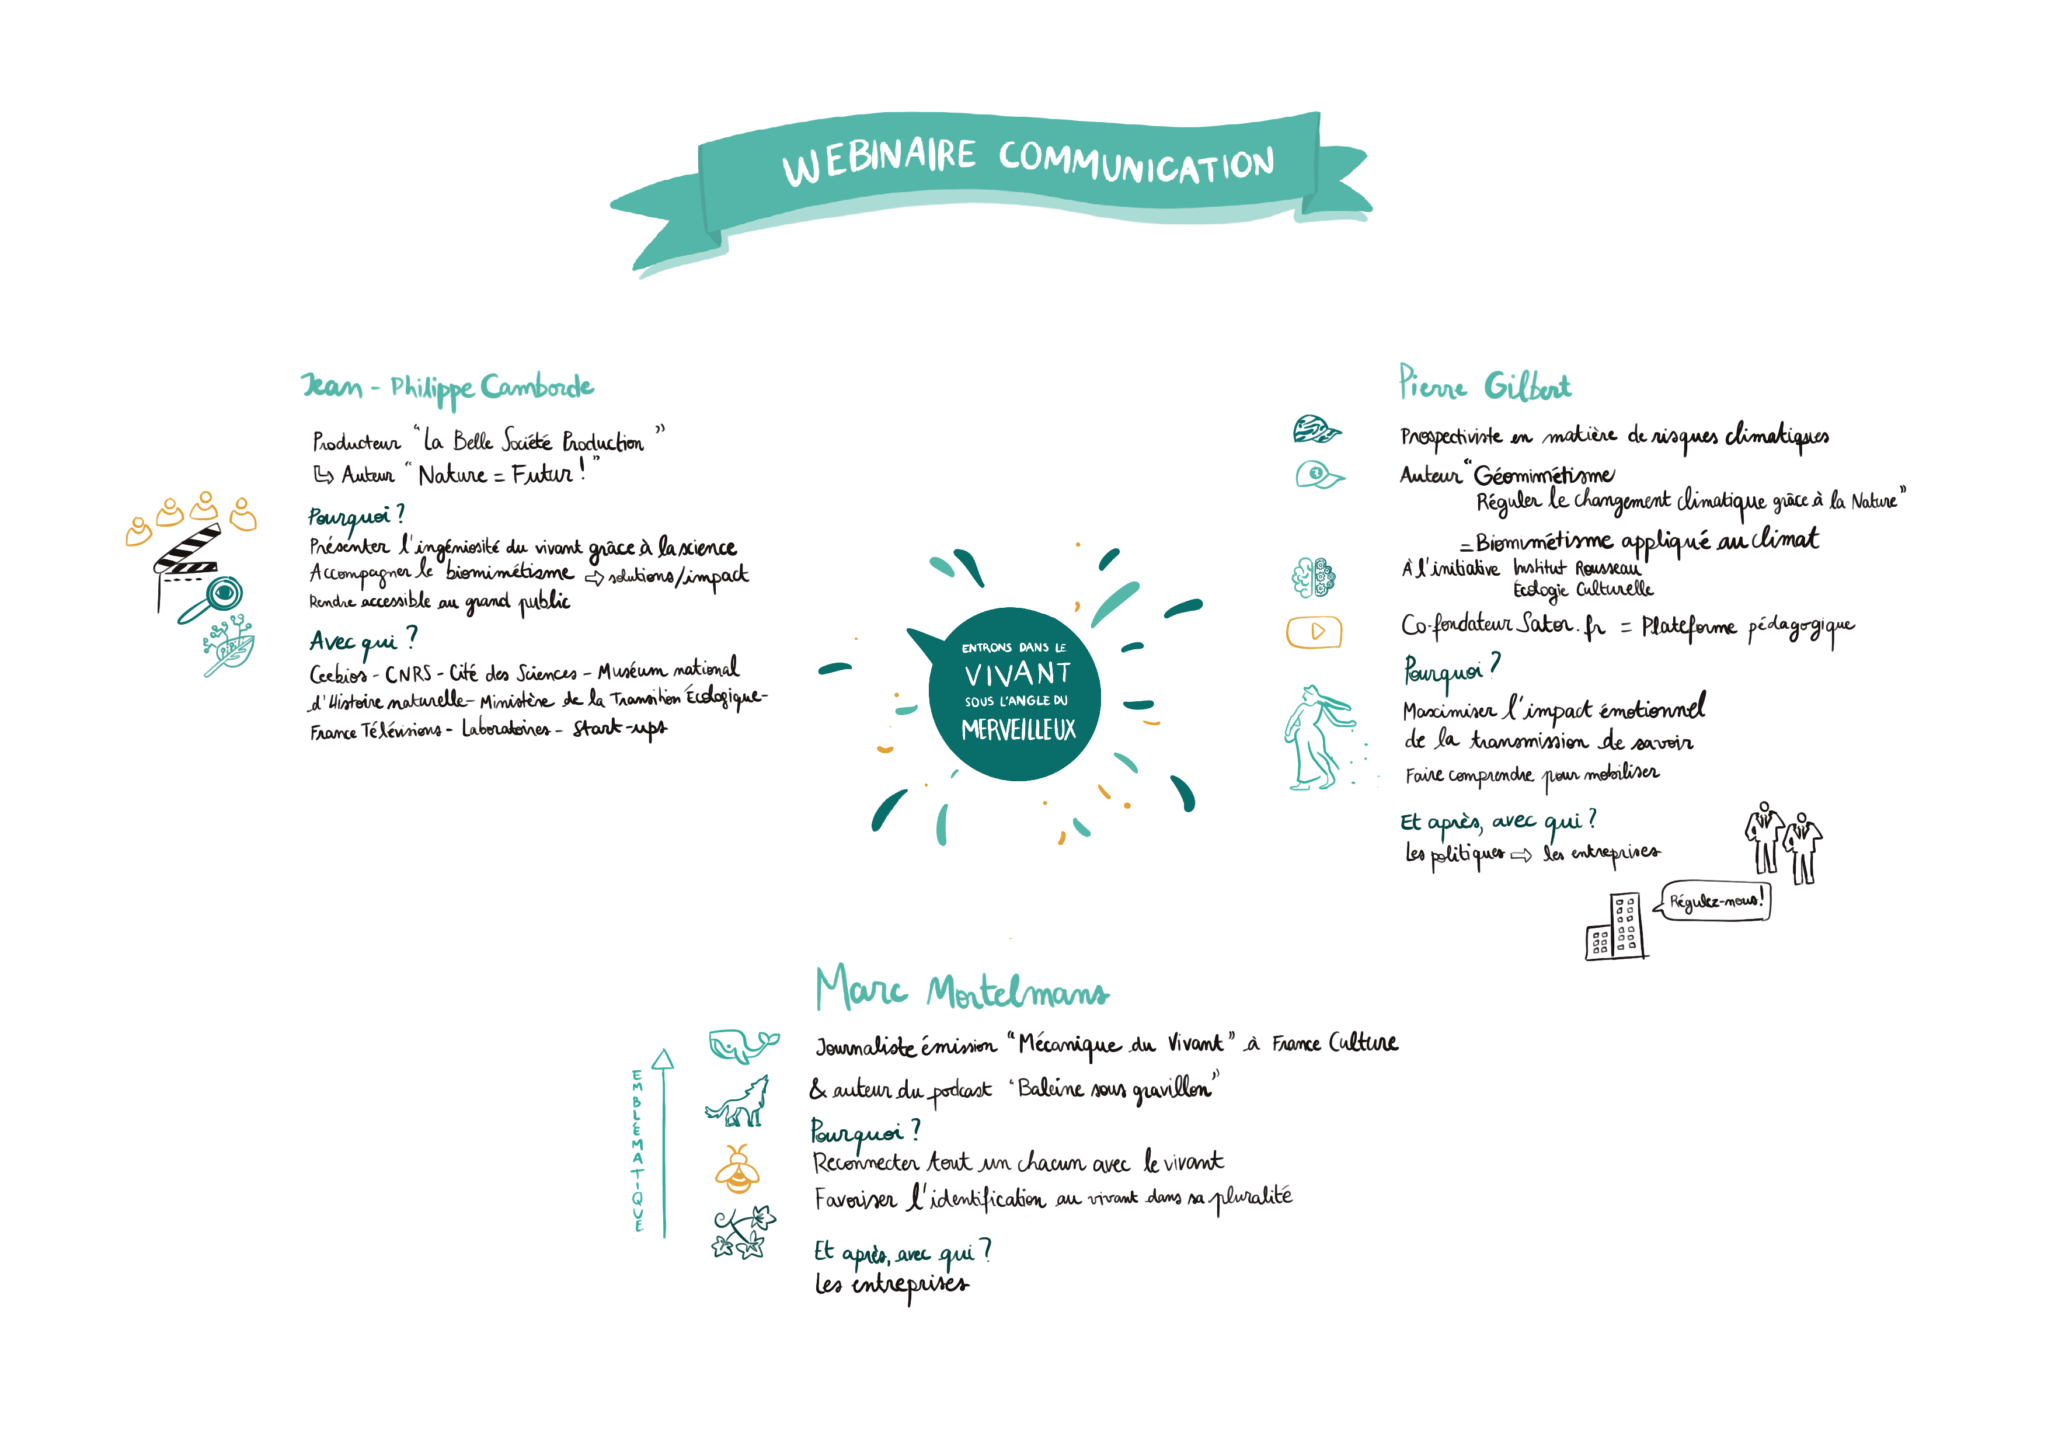 WEBINAIRE COMMUNICATION
Jean-Philippe Camborde
Producteur "La Belle Société Production"
Auteur "Nature = Futur!"
Pourquoi ?
Présenter l'ingéniosité du vivant grâce à la science
Accompagner le biomimétisme ⇨ solutions/impact
Rendre accessible au grand public
Avec qui ?
Ceebios - CNRS - Cité des Sciences - Muséum national
d'Histoire naturelle - Ministère de la Transition Écologique -
France Télévisions - Laboratoires - Start-ups
ENTRONS DANS LE
VIVANT
SOUS L'ANGLE DU
MERVEILLEUX
Pierre Gilbert
Prospectiviste en matière de risques climatiques
Auteur "Géomimétisme
Réguler le changement climatique grâce à la Nature"
= Biomimétisme appliqué au climat
À l'initiative Institut Rousseau
Écologie Culturelle
Co-fondateur Sator.fr = Plateforme pédagogique
Pourquoi ?
Maximiser l'impact émotionnel
de la transmission de savoir
Faire comprendre pour mobiliser
Et après, avec qui ?
Les politiques ⇨ les entreprises
Régulez-nous!
Marc Mortelmans
Journaliste émission "Mécanique du Vivant" à France Culture
& auteur du podcast "Baleine sous gravillon"
Pourquoi ?
Reconnecter tout un chacun avec le vivant
Favoriser l'identification au vivant dans sa pluralité
Et après, avec qui ?
Les entreprises
EMBLÉMATIQUE